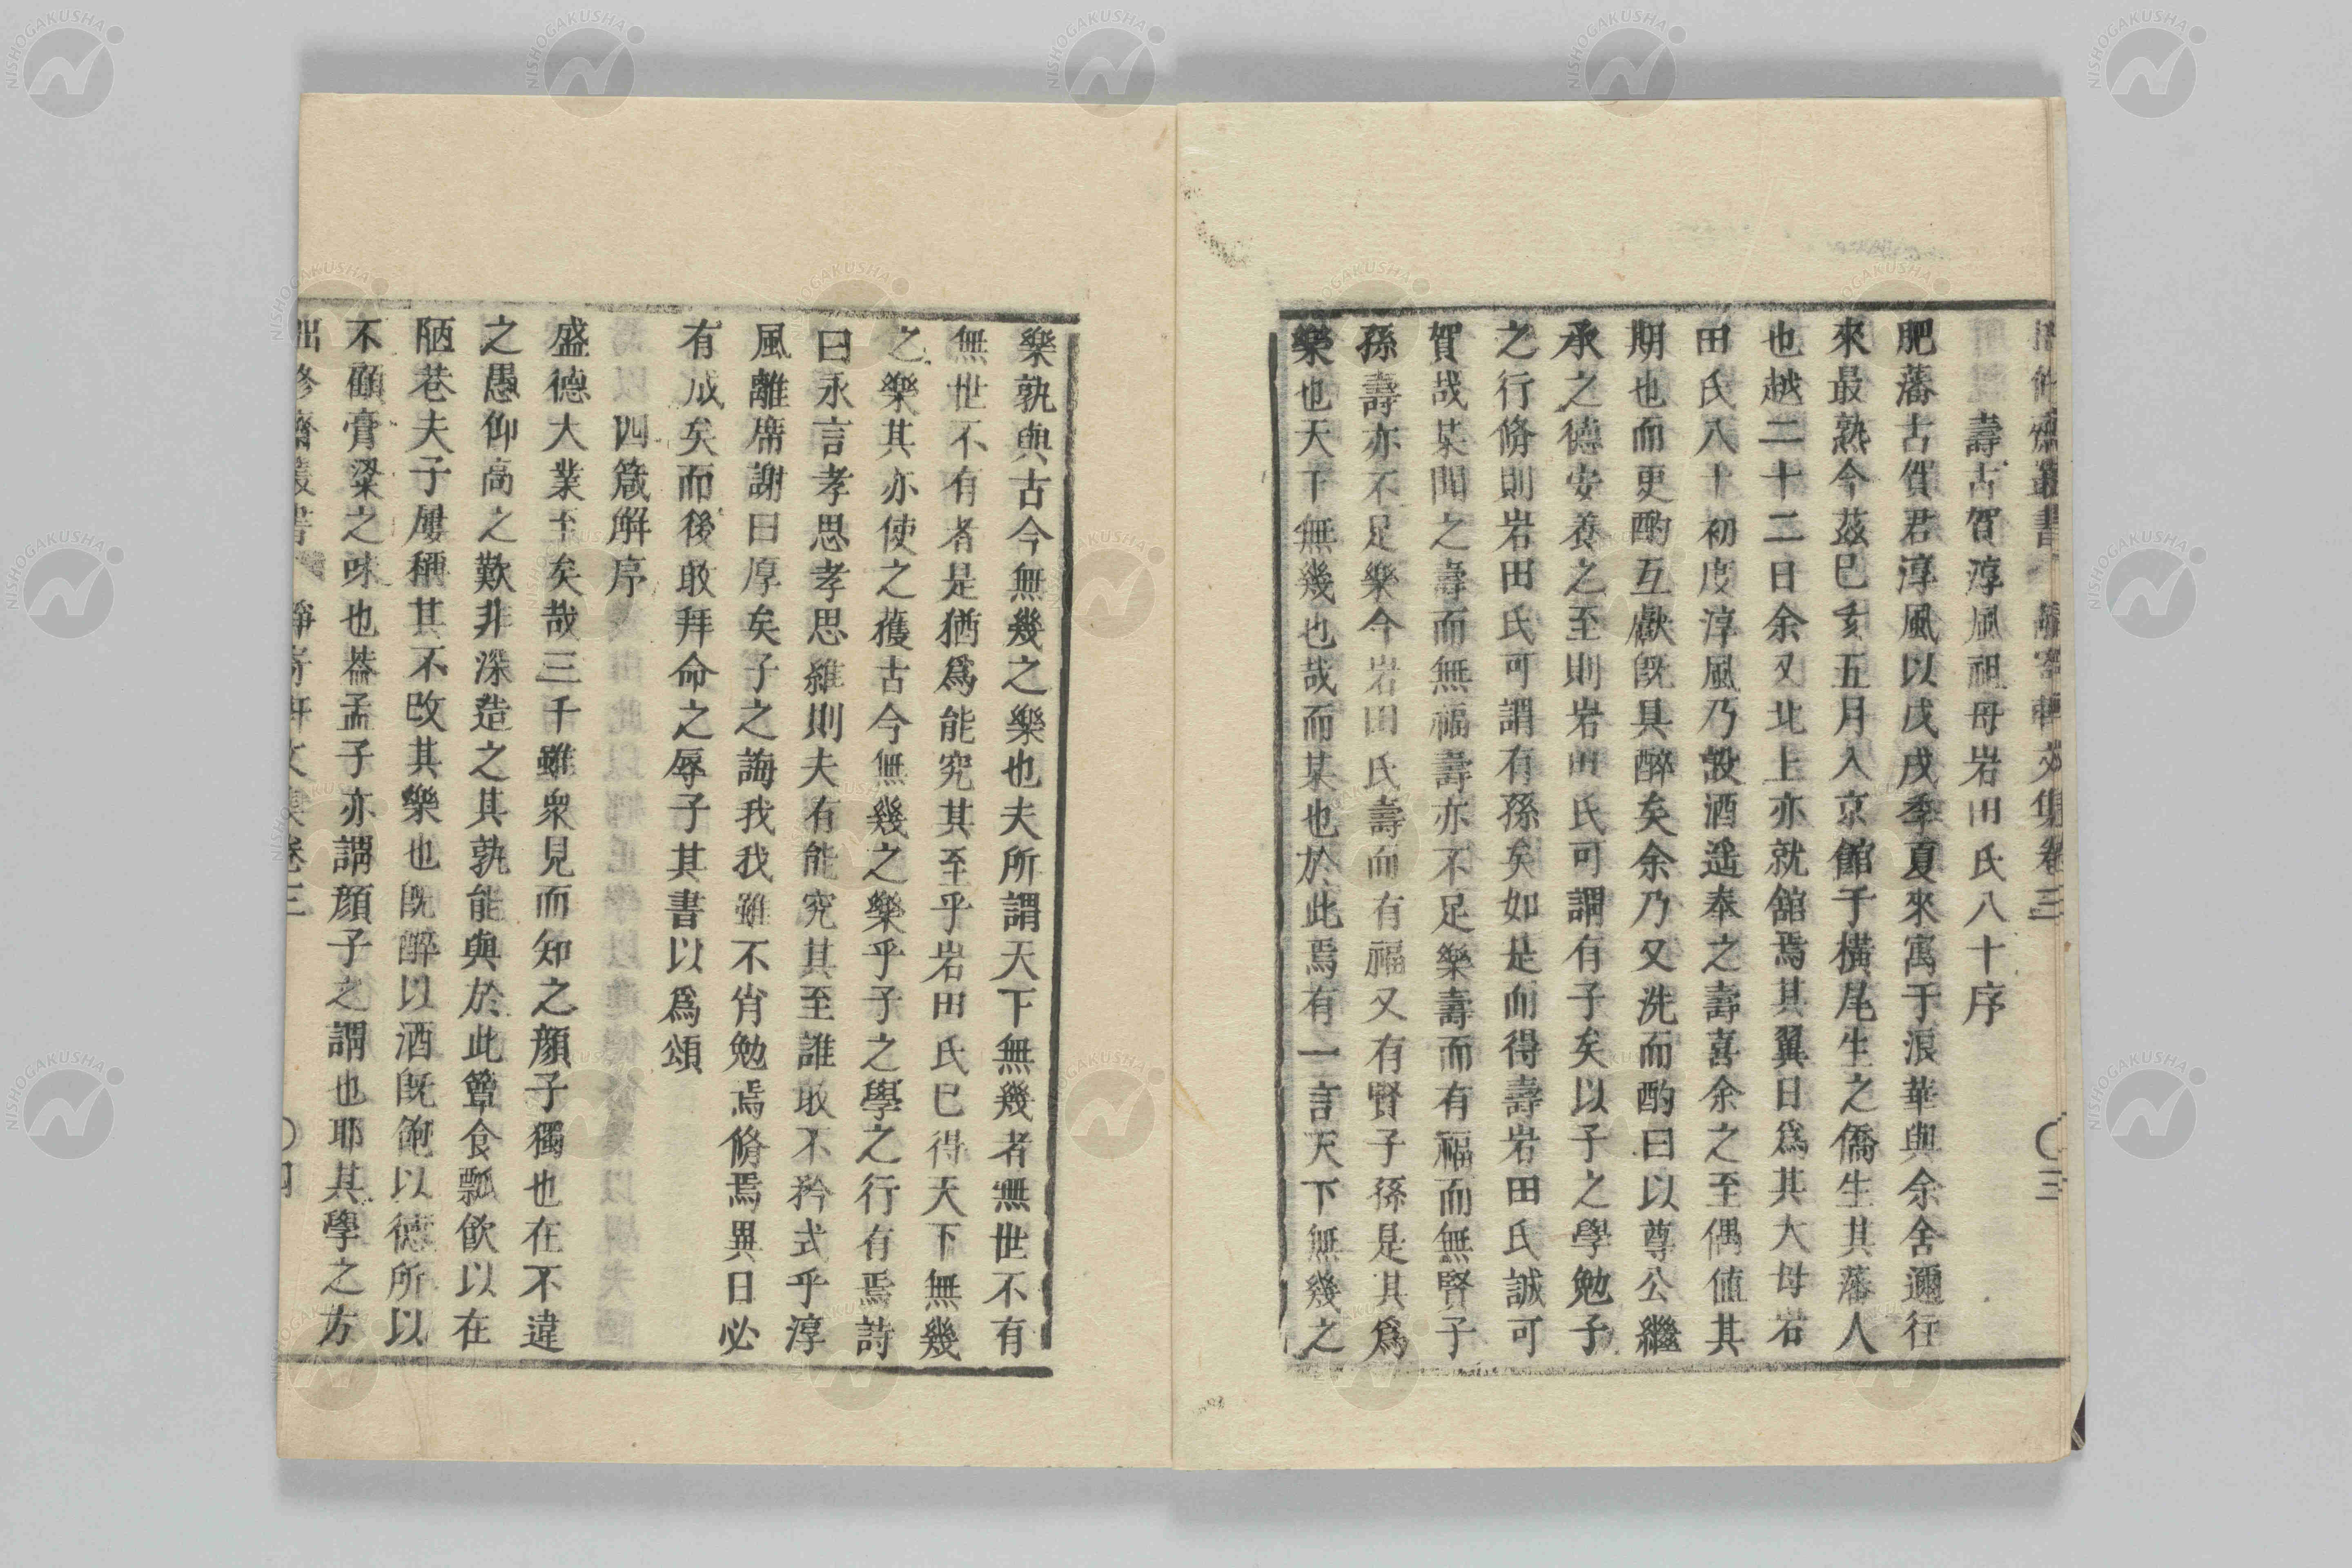 壽古賀淳風祖母岩田氏八十序
肥藩古賀君淳風以戊戌季夏來寓于浪華與余舍邇行
來最熟今茲已亥五月入京館于橫尾生之僑生其藩人
也越二十二日余又北上亦就館焉其翼日爲其大母岩
田氏八十初度淳風乃設酒遥奉之壽喜余之至偶値其
期也而更酌互獻既具醉矣余乃又洗而酌曰以尊公繼
承之德安養之至則岩田氏可謂有子矣以子之學勉子
之行脩則岩田氏可謂有孫矣如是而得壽岩田氏誠可
賀哉某聞之壽而無福壽亦不足樂壽而有福而無賢子
孫壽亦不足樂今岩田氏壽而有福又有賢子孫是其爲
樂也天下無幾也哉而某也於此焉有一言天下無幾之
樂孰與古今無幾之樂也夫所謂天下無幾者無世不有
無世不有者是猶爲能究其至乎岩田氏已得天下無幾
之樂其亦使之獲古今無幾之樂乎子之學之行有焉詩
曰永言孝思孝思維則夫有能究其至誰敢不矜式乎淳
風離席謝曰厚矣子之誨我我雖不肖勉焉脩焉異日必
有成矣而後敢拜命之辱子其書以爲頌
四箴解序
盛德大業至矣哉三千雖衆見而知之顏子獨也在不違
之愚仰高之歎非深造之其孰能與於此簞食瓢飮以在
陋巷夫子屢稱其不改其樂也既醉以酒既飽以德所以
不顧膏粱之味也葢孟子亦謂顏子之謂也耶其學之方